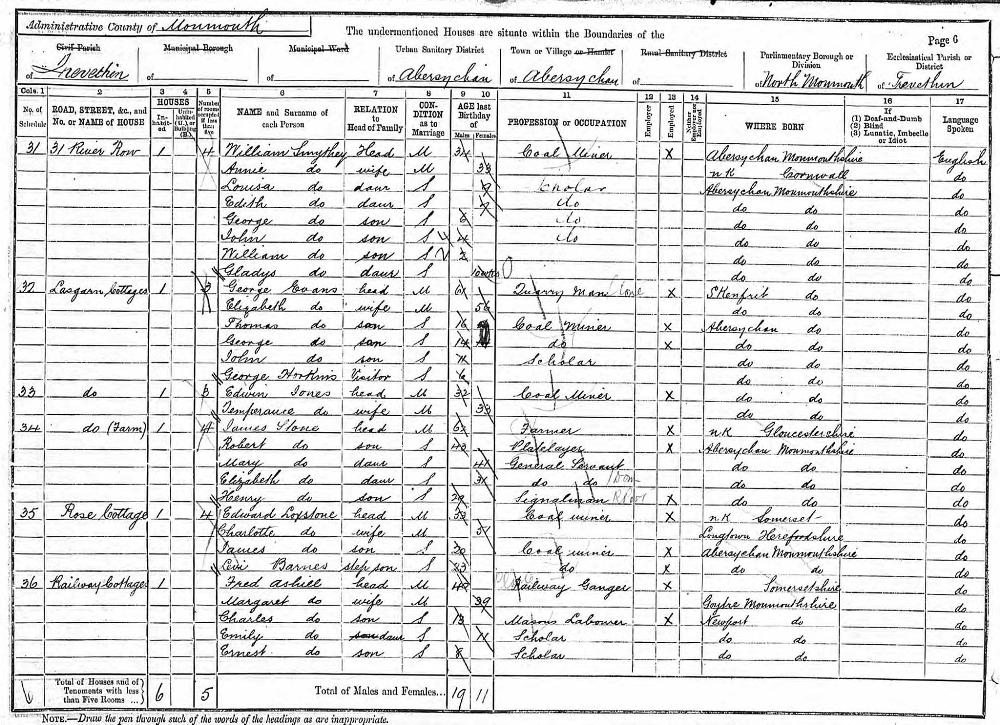 Administrative County of Monmouth
The undermentioned Houses are situate within the Boundaries of the
Page 6
Civil Parish of Trevethin
Municipal Borough of
Municipal Ward of
Urban Sanitary District of Abersychan
Town or Village or Hamlet of Abersychan
Rural Sanitary District of
Parliamentary Borough or Division of North Monmouth
Ecclesiastical Parish or District of Trevethin
Cols. 1 2 3 4 5 6 7 8 9 10 11 12 13 14 15 16 17
No. of Schedule
ROAD, STREET, &c., and No. or NAME of HOUSE
HOUSES
Inhabited
Uninhabited (U.) or Building (B.)
Number of rooms occupied if less than five
NAME and Surname of each Person
RELATION to Head of Family
CONDITION as to Marriage
AGE last Birthday of
Males Females
PROFESSION or OCCUPATION
Employer
Employed
Neither Employer nor Employed
WHERE BORN
If (1) Deaf-and-Dumb (2) Blind (3) Lunatic, Imbecile or Idiot
Language Spoken
31 31 River Row 1 4 William Smythey Head M 34 Coal Miner X Abersychan Monmouthshire English
Annie do wife M 33 nK Cornwall do
Louisa do daur S 9 Scholar Abersychan Monmouthshire do
Edith do daur S 7 do do do do
George do son S 6 do do do do
John do son S 4 do do do do
William do son S 2 do do do
Gladys do daur S 10 mths do do do
32 Lasgarn Cottages 1 3 George Evans head M 61 Quarry Man Stone X Skenfrit do do
Elizabeth do wife M 56 do do do
Thomas do son S 16 Coal Miner X Abersychan do do
George do son S 14 do X do do do
John do son S 11 Scholar do do do
George Hopkins Visitor S 6 do do do
33 do 1 3 Edwin Jones head M 32 Coal Miner X do do do
Temperance do wife M 33 do do do
34 do (Farm) 1 4 James Stone head M 62 Farmer X nK Gloucestershire do
Robert do son S 43 Platelayer X Abersychan Monmouthshire do
Mary do daur S 41 General Servant do do do
Elizabeth do daur S 31 do do Dom do do do
Henry do son S 29 Signalman X do do do
35 Rose Cottage 1 4 Edward Loxstone head M 53 Coal miner X nK Somerset do
Charlotte do wife M 51 Longtown Herefordshire do
James do son S 20 Coal miner X Abersychan Monmouthshire do
Levi Barnes step son S 23 do X do do do
36 Railway Cottages 1 Fred Ashill head M 40 Railway Ganger X Somersetshire do
Margaret do wife M 39 Goytre Monmouthshire do
Charles do son S 13 Masons Labourer X Newport do do
Emily do son daur S 11 Scholar do do do
Ernest do son S 8 Scholar do do do
Total of Houses and of Tenements with less than Five Rooms ...
6 5
Total of Males and Females... 19 11
NOTE.—Draw the pen through such of the words of the headings as are inappropriate.